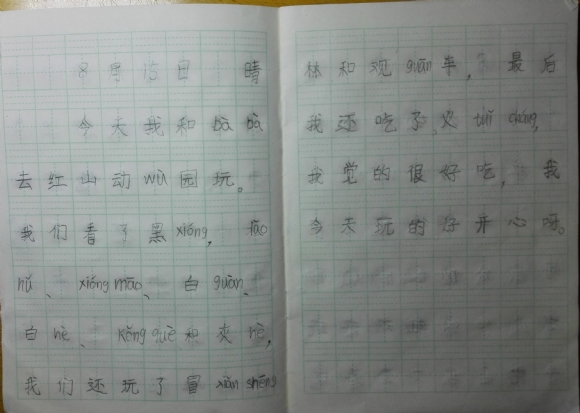 8月 日 晴
今天我和bà bà
去红山动wù园玩。
我们看了黑xióng,
xióng māo、白guàn、
白hè、kǒng què和灰hè,
我们还玩了冒xiǎn shēng
林和观guāng车,最后
我还吃了火tuǐ cháng,
我觉的很好吃,我
今天玩的好开心呀。